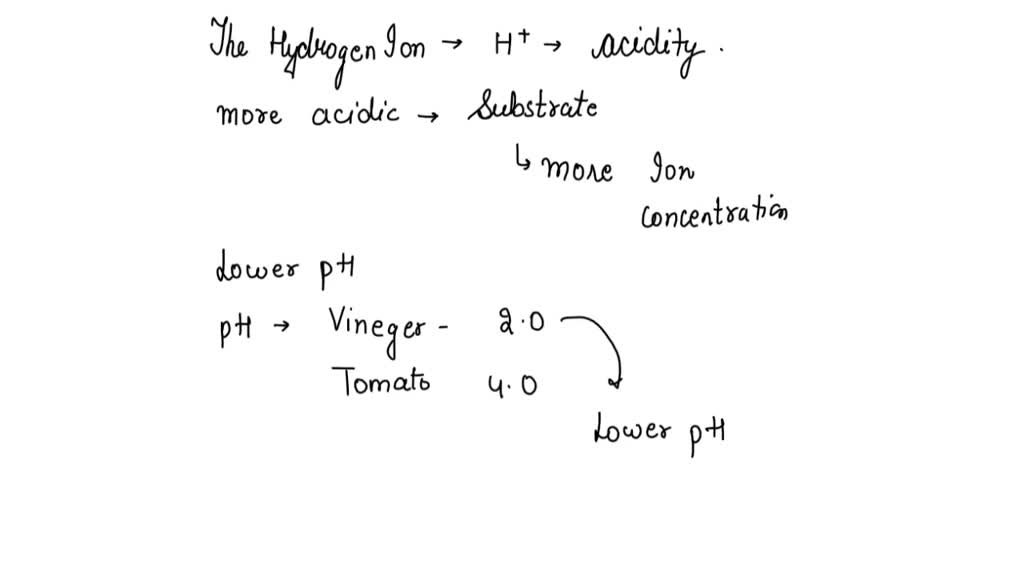 The Hydrogen Ion → H⁺ → acidity.
more acidic → Substrate
↳ more Ion
concentration
Lower pH
pH → Vineger - 2.0
Tomato 4.0
Lower pH